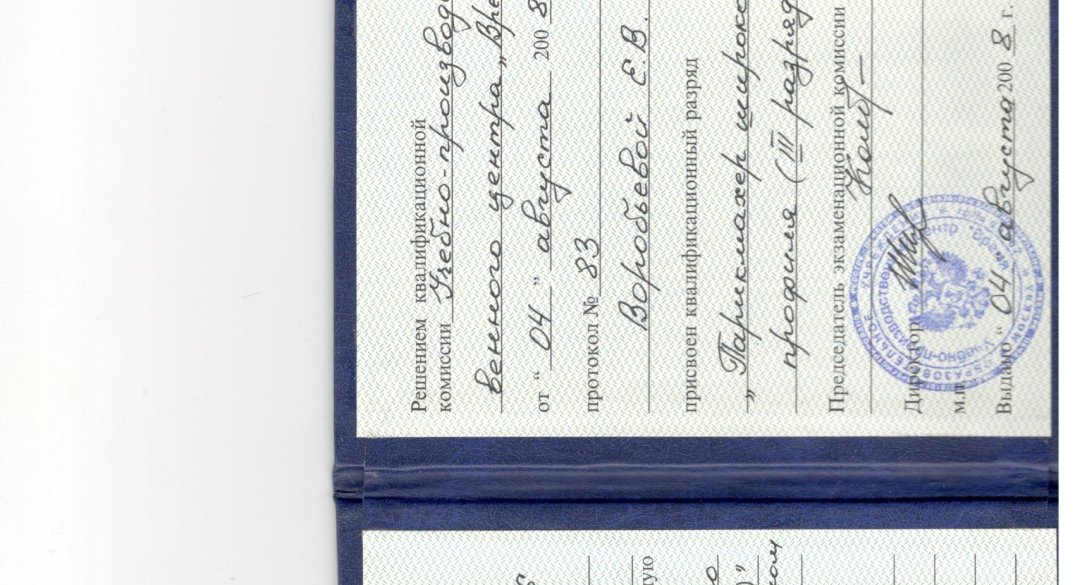 Решением квалификационной
комиссии Учебно-производ
венного центра „Вре
от “ 04 ” августа 200 8
протокол № 83
Воробьевой Е.В.
присвоен квалификационный разряд
„ Парикмахер широко
профиля (III разряд
Председатель экзаменационной комиссии
Директор
м.п
Выдано “ 04 августа 200 8 г.
ную